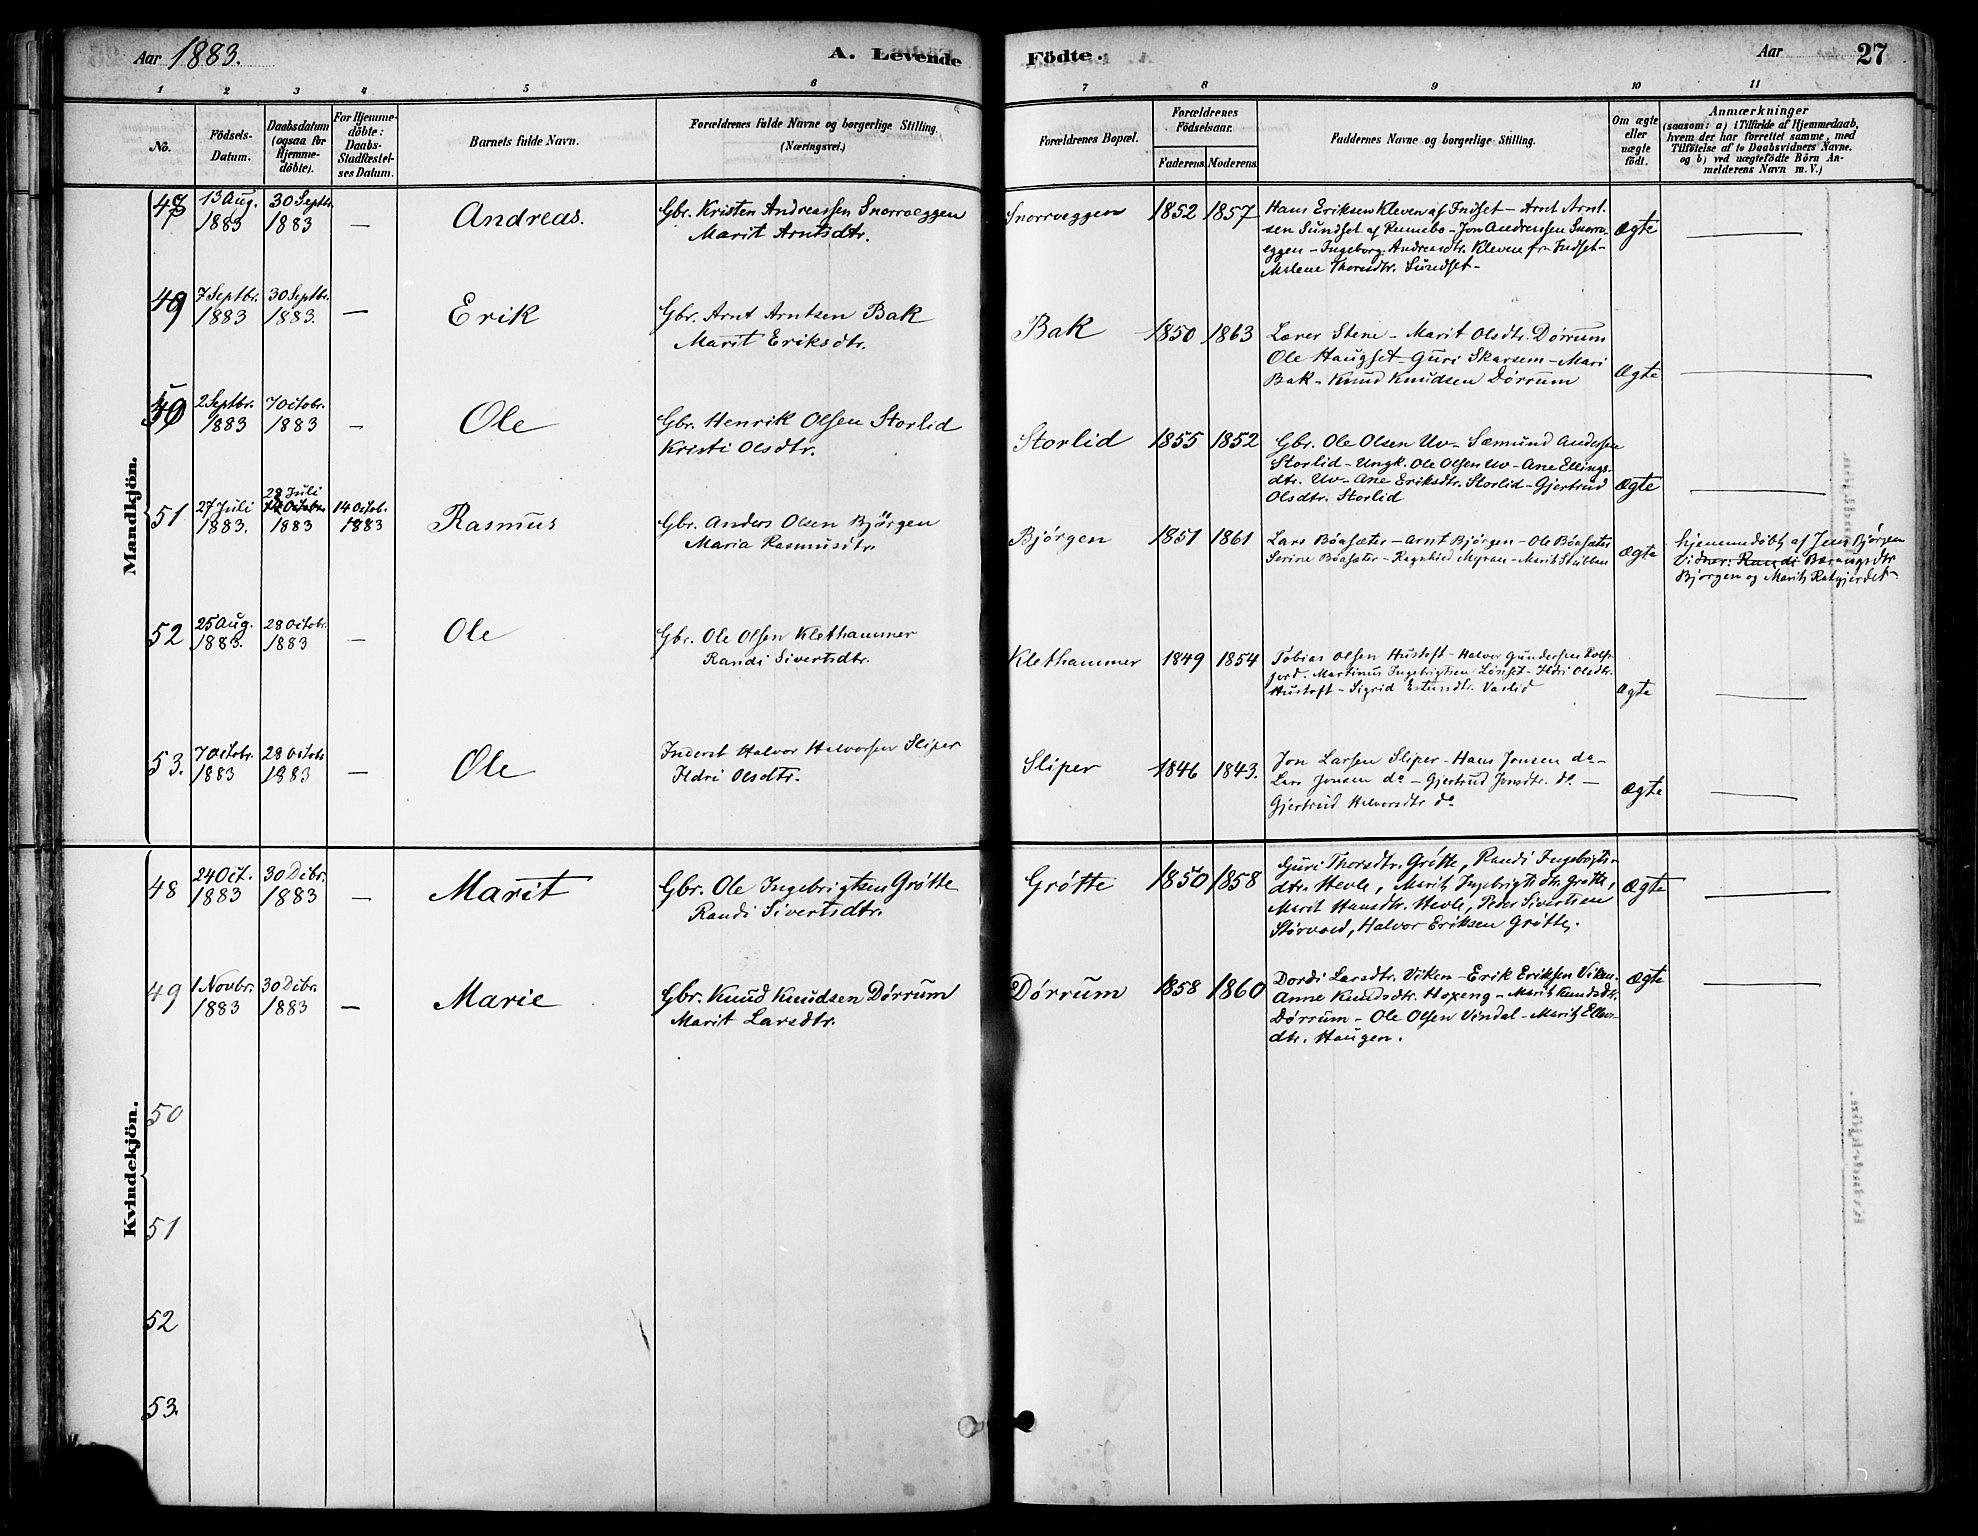 Aar 1883.
A. Levende
Födte.
Aar
27
1 2 3 4 5 6 7 8 9 10 11
No.
Födsels-
Datum.
Daabsdatum
(ogsaa for
Hjemme-
döbte).
For Hjemme-
döbte:
Daabs-
Stadfæstel-
ses Datum.
Barnets fulde Navn.
Forældrenes fulde Navne og borgerlige Stilling.
(Næringsvei.)
Forældrenes Bopæl.
Forældrenes
Födselsaar.
Faderens. Moderens.
Faddernes Navne og borgerlige Stilling.
Om ægte
eller
uægte
födt.
Anmærkninger
(saasom: a) i Tilfælde af Hjemmedaab,
hvem der har forrettet samme, med
Tilföielse af to Daabsvidners Navne.
og b) ved uægtefödte Börn An-
melderens Navn m. V.)
Mandkjön.
13 Aug.
1883
30 Septbr.
1883
—
Andreas.
Gbr. Kristen Andreassen Snorroeggen
Marit Arntsdtr.
Snorroeggen
1852 1857
Hans Eriksen Kleven af Indset - Arnt Arnt.
sen Sundset af Rennebo - Jon Andreassen Snorro-
eggen - Ingeborg Andreasdtr. Kleven fr. Indset -
Malene Thoresdtr. Sundset -
Ægte
49
7 Septbr.
1883
30 Septbr.
1883.
—
Erik
Gbr. Arnt Arntsen Bak
Marit Eriksdtr.
Bak
1850 1863
Lærer Stene - Marit Olsdtr. Dørrum
Ole Haugset - Guri Skarsem - Mari
Bak - Knud Knudsen Dørrum
Ægte
50
2 Septbr.
1883
7 Octobr.
1883
-
Ole
Gbr. Henrik Olsen Storlid
Kristi Olsdtr.
Storlid
1855 1852
Gbr. Ole Olsen Uv - Sæmund Andersen
Storlid - Ungk. Ole Olsen Uv - Ane Ellings-
dtr. Uv - Ane Eriksdtr. Storlid - Gjertrud
Olsdtr. Storlid
Ægte
51
27 Juli
1883.
28 Juli
14 Octobr.
1883
14 Octob.
1883
Rasmus
Gbr. Anders Olsen Bjørgen
Maria Rasmusdtr.
Bjørgen
1851 1861
Lars Böasæter - Arnt Bjørgen - Ole Böasæter
Serine Böasæter - Ragnhild Myran - Marit Stubben
Ægte
hjemmedøbt af Jens Bjørgen
Vidner: Randi
Bjørgen og Marit
52
25 Aug.
1883.
28 Octobr.
1883
—
Ole
Gbr. Ole Olsen Klethammer
Randi Sivertsdtr.
Klethammer
1849 1854
Tobias Olsen Hustoft - Halvor Gundersen
Martinus Ingebrigtsen Løsset - Ildri Olsdtr.
Hustoft - Sigrid Estensdtr. Vaslid
Ægte
53.
7 Octobr.
1883
28 Octobr
1883
—
Ole
Inderst Halvor Halvorsen Sliper
Ildri Olsdtr.
Sliper
1846 1843.
Jon Larsen Sliper - Hans Jonsen do -
Lars Jonsen do - Gjertrud Jonsdtr. do -
Gjertrud Halvorsdtr do
Ægte
Kvindekjön.
48
24 Oct.
1883
30 Dcbr.
1883
—
Marit
Gbr. Ole Ingebrigtsen Grøtte
Randi Sivertsdtr.
Grøtte
1850 1858
Guri Thorsdtr. Grøtte, Randi Ingebrigts-
dtr. Hevle, Marit Ingebrigtsdtr. Grøtte,
Marit Hansdtr. Hevle, Peder Sivertsen
Halvor Eriksen Grøtte.
Ægte
49
1 Novbr.
1883
30 Dcbr.
1883
—
Marie
Gbr. Knud Knudsen Dørrum
Marit Larsdtr.
Dørrum
1858 1860
Dordi Larsdtr. Viken - Erik Eriksen Viken -
Anne Knudsdtr. Hoxeng - Marit Knudsdtr.
Dørrum - Ole Olsen Vindal - Marit
dtr. Haugen.
Ægte
50
51
52
53.